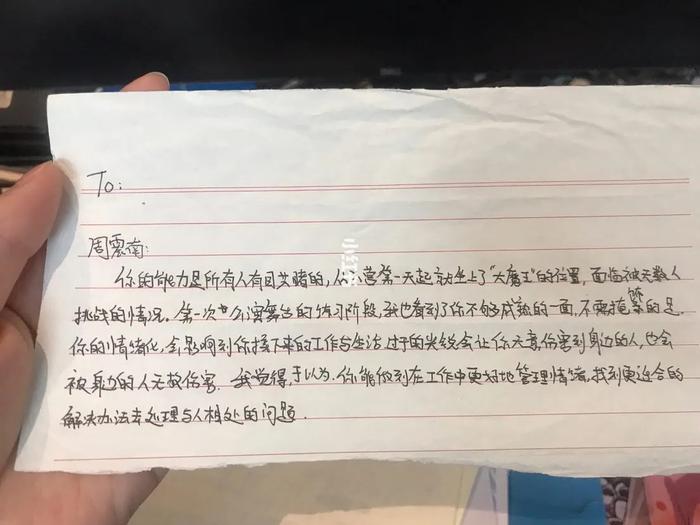 To:
周震南:
你的能力是所有人有目共睹的,你 营第一天起就坐上了"大魔王"的位置,面临被无数人
挑战的情况。第一次 公演舞台的练习阶段,我也看到了你不够成熟的一面,不要掩 的是,
你的情绪化,会影响到你接下来的工作与生活,过于的尖锐会让你无意伤害到身边的人,也会
被身边的人无故伤害。我觉得,于以为.你能做到在工作中更好地管理情绪,找到更适合的
解决办法去处理与人相处的问题.
小红书